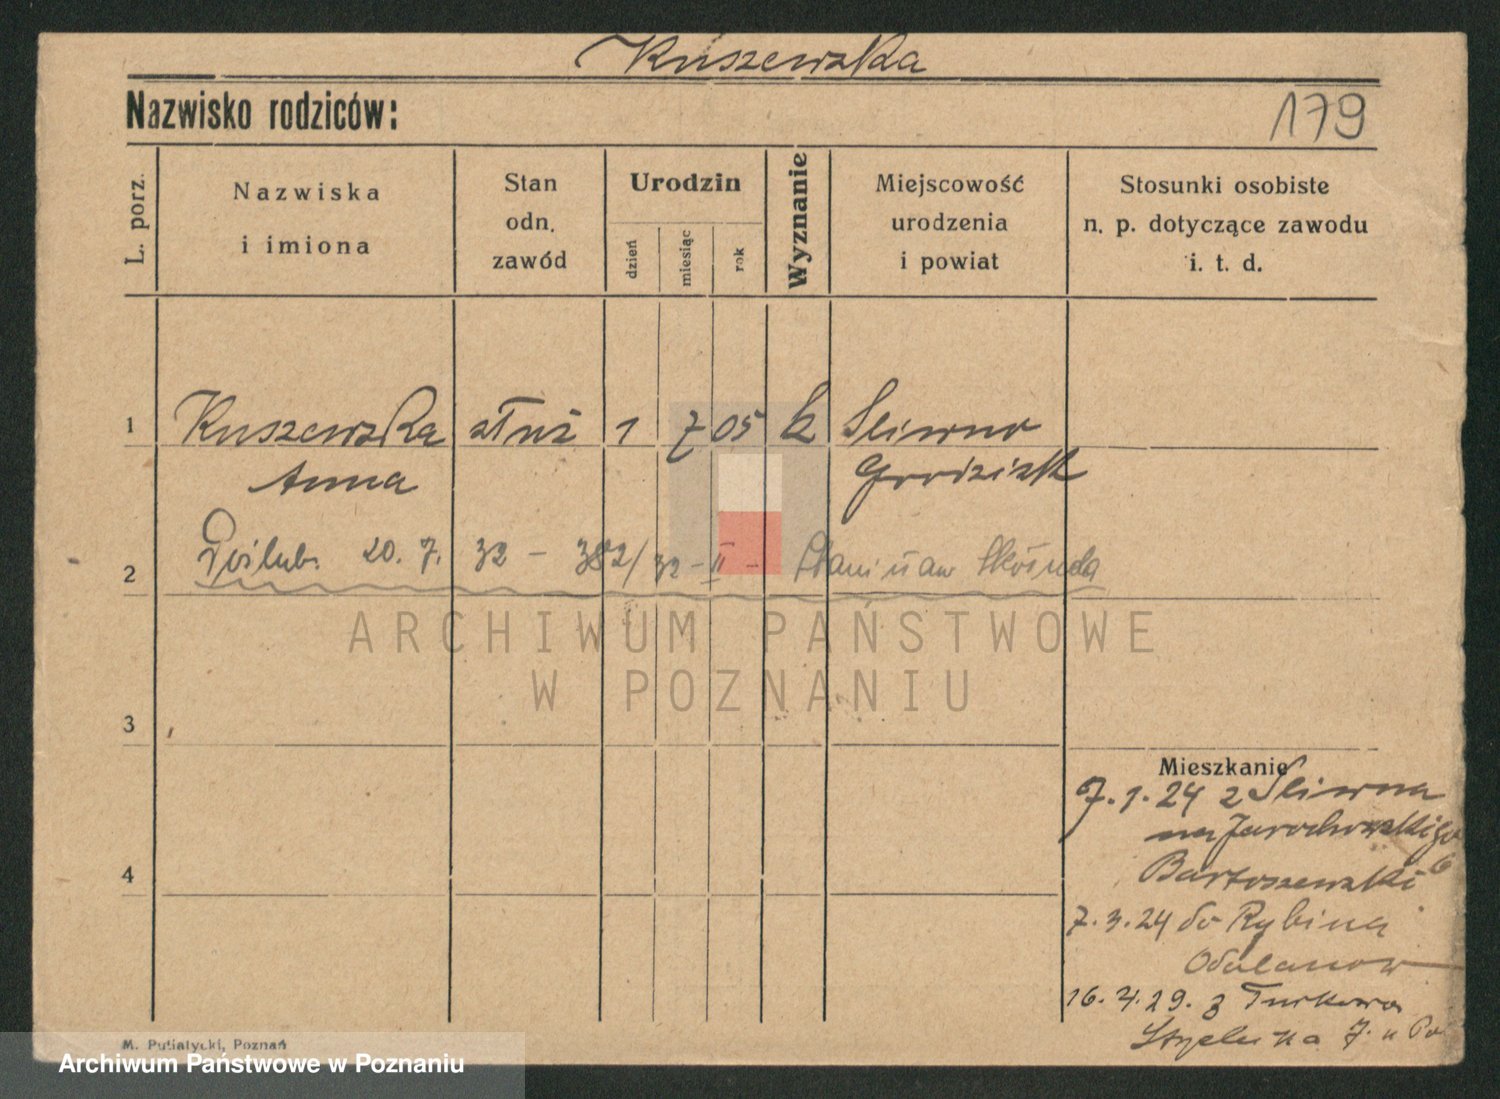 Kuszewska
Nazwisko rodziców:
179
L. porz.
Nazwiska
i imiona
Stan
odn.
zawód
Urodzin
dzień
miesiąc
rok
Wyznanie
Miejscowość
urodzenia
i powiat
Stosunki osobiste
n. p. dotyczące zawodu
i. t. d.
1 Kuszewska służ 1 7 05 k Sliwno
Anna Grodzisk
2 Poślub. 20. 7. 32 – 382/32 – II – Stanisław
ARCHIWUM PAŃSTWOWE
W POZNANIU
3
Mieszkanie
7. 1. 24 z Sliwna
na Jarochowskiego
Bartoszewski 6
4
7. 3. 24 do Rybina
Odolanow
16. 4. 29. z Turkowa
Strzelecka 7. u
M. Putiatycki, Poznań
Archiwum Państwowe w Poznaniu